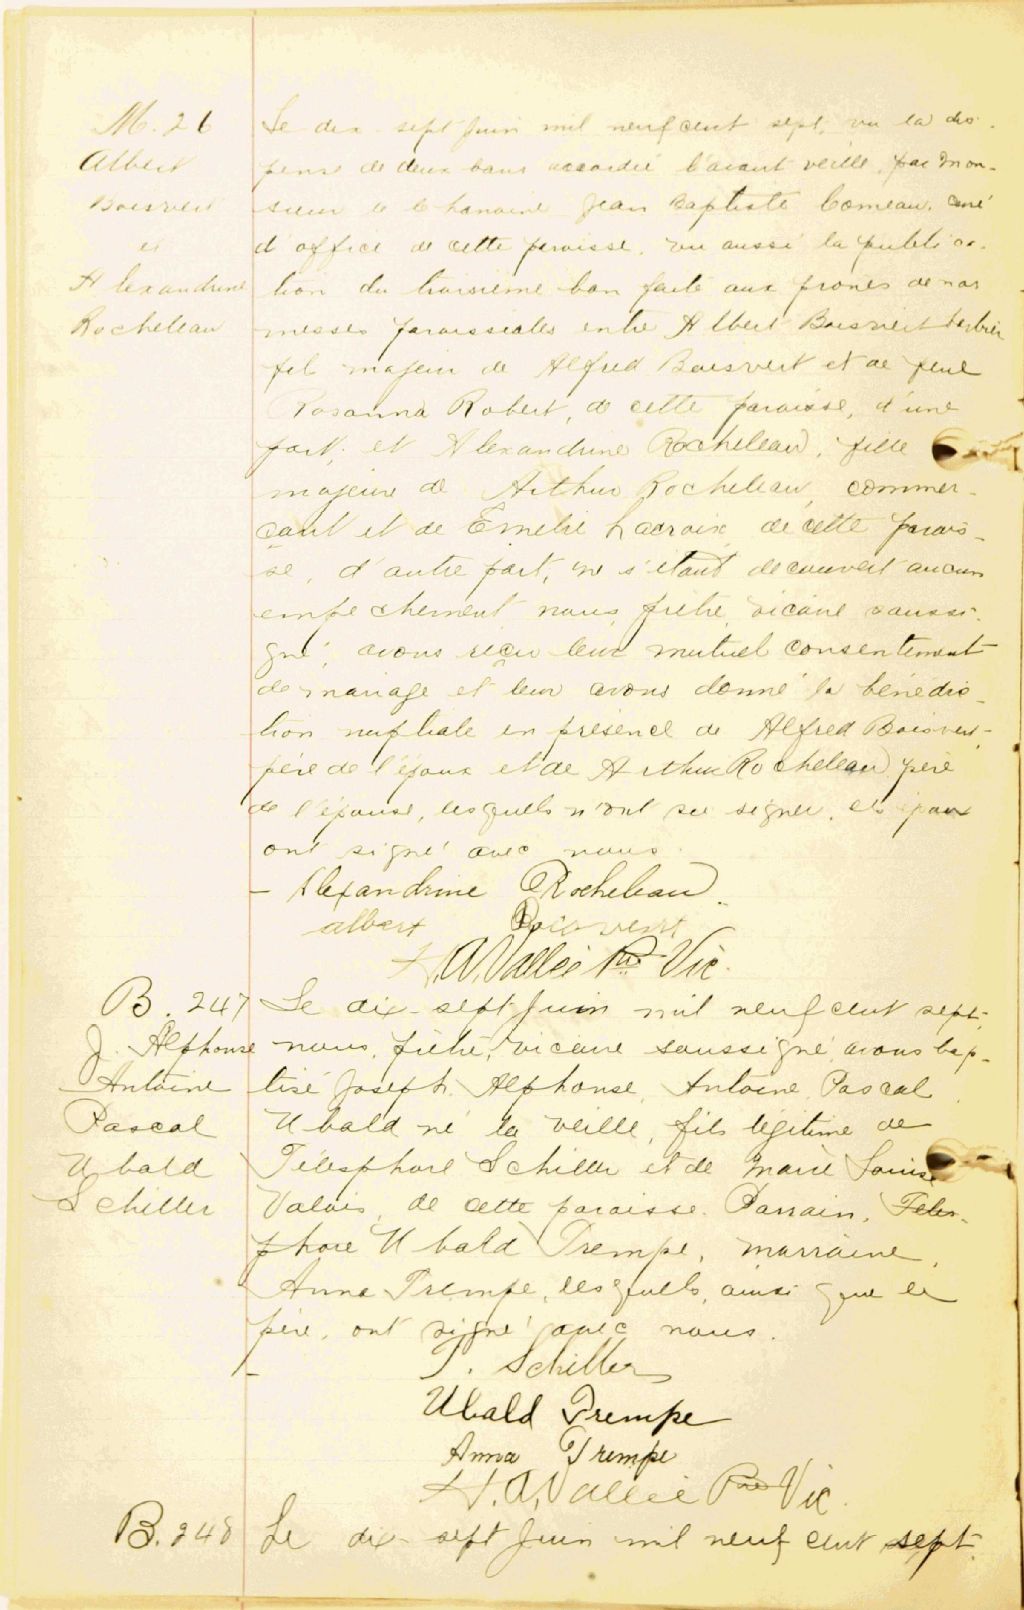 M. 26
Albert
Boisvert
et
Alexandrine
Rocheleau
Le dix-sept juin mil neuf cent sept, vu la dis-
pense de deux bans accordée l'avant veille, par Mon-
sieur le chanoine Jean Baptiste Comeau, curé
d'office de cette paroisse, vu aussi la publica-
tion du troisième ban faite aux prônes de nos
messes paroissiales entre Albert Boisvert barbier
fils majeur de Alfred Boisvert et de feue
Rosanna Robert, de cette paroisse, d'une
part, et Alexandrine Rocheleau, fille
majeure de Arthur Rocheleau, commer-
çant et de Emelie Lacroix de cette parois-
se, d'autre part, ne s'étant découvert aucun
empêchement, nous, prêtre, vicaire soussi-
gné, avons reçu leur mutuel consentement
de mariage et leur avons donné la bénédic-
tion nuptiale en présence de Alfred Boisvert,
père de l'époux et de Arthur Rocheleau père
de l'épouse, lesquels n'ont su signer, les époux
ont signé avec nous.
- Alexandrine Rocheleau.
Albert Boisvert
H.A. Vallée Ptre Vic.
B. 247
J. Alphonse
Antoine
Pascal
Ubald
Schiller
Le dix-sept juin mil neuf cent sept,
nous, prêtre, vicaire soussigné, avons bap-
tisé Joseph, Alphonse, Antoine, Pascal,
Ubald né la veille, fils légitime de
Télesphore Schiller et de Marie Louise
Valois, de cette paroisse. Parrain, Téles-
phore Ubald Trempe, marraine,
Anna Trempe, lesquels, ainsi que le
père, ont signé avec nous.
- T. Schiller
Ubald Trempe
Anna Trempe
H.A. Vallée Ptre Vic.
B. 248
Le dix-sept juin mil neuf cent sept,